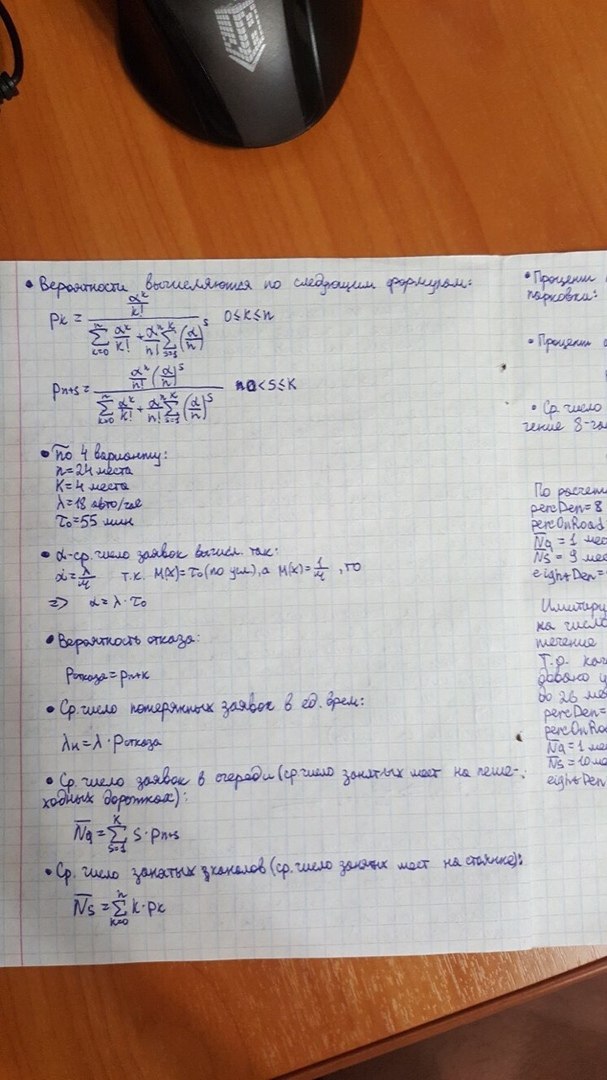 • Вероятности вычисляются по следующим формулам:
pk = (α^k/k!) / (∑_{k=0}^{n} α^k/k! + α^n/n! ∑_{s=1}^{K} (α/n)^s) 0≤k≤n
pn+s = (α^n/n! (α/n)^s) / (∑_{k=0}^{n} α^k/k! + α^n/n! ∑_{s=1}^{K} (α/n)^s) 0<s≤K
• По 4 варианту:
n=24 места
K=4 места
λ=18 авто/час
τ₀=55 мин
• α-ср. число заявок вычисл. так:
α=λ/μ т.к. M(X)=τ₀ (по усл), а M(X)=1/μ, то
=> α=λ·τ₀
• Вероятность отказа:
Pотказа=pn+k
• Ср. число потерянных заявок в ед. врем:
λн=λ·Pотказа
• Ср. число заявок в очереди (ср. число занятых мест на пеше-
ходных дорожках):
N̅q=∑_{s=1}^{K} s·pn+s
• Ср. число занятых каналов (ср. число занятых мест на стоянке):
N̅s=∑_{k=0}^{n} k·pk
• Процент
парковки:
• Процент
• Ср. число
чение 8-
По расчет
percDen=8
percOnRoad
N̅q=1 мес
N̅s=9 мес
eightDen=
Имитиру
на число
течение
Т.о. кач
до 26 ме
percDen=
percOnRoa
N̅q=1 мес
N̅s=10 ме
eightDen